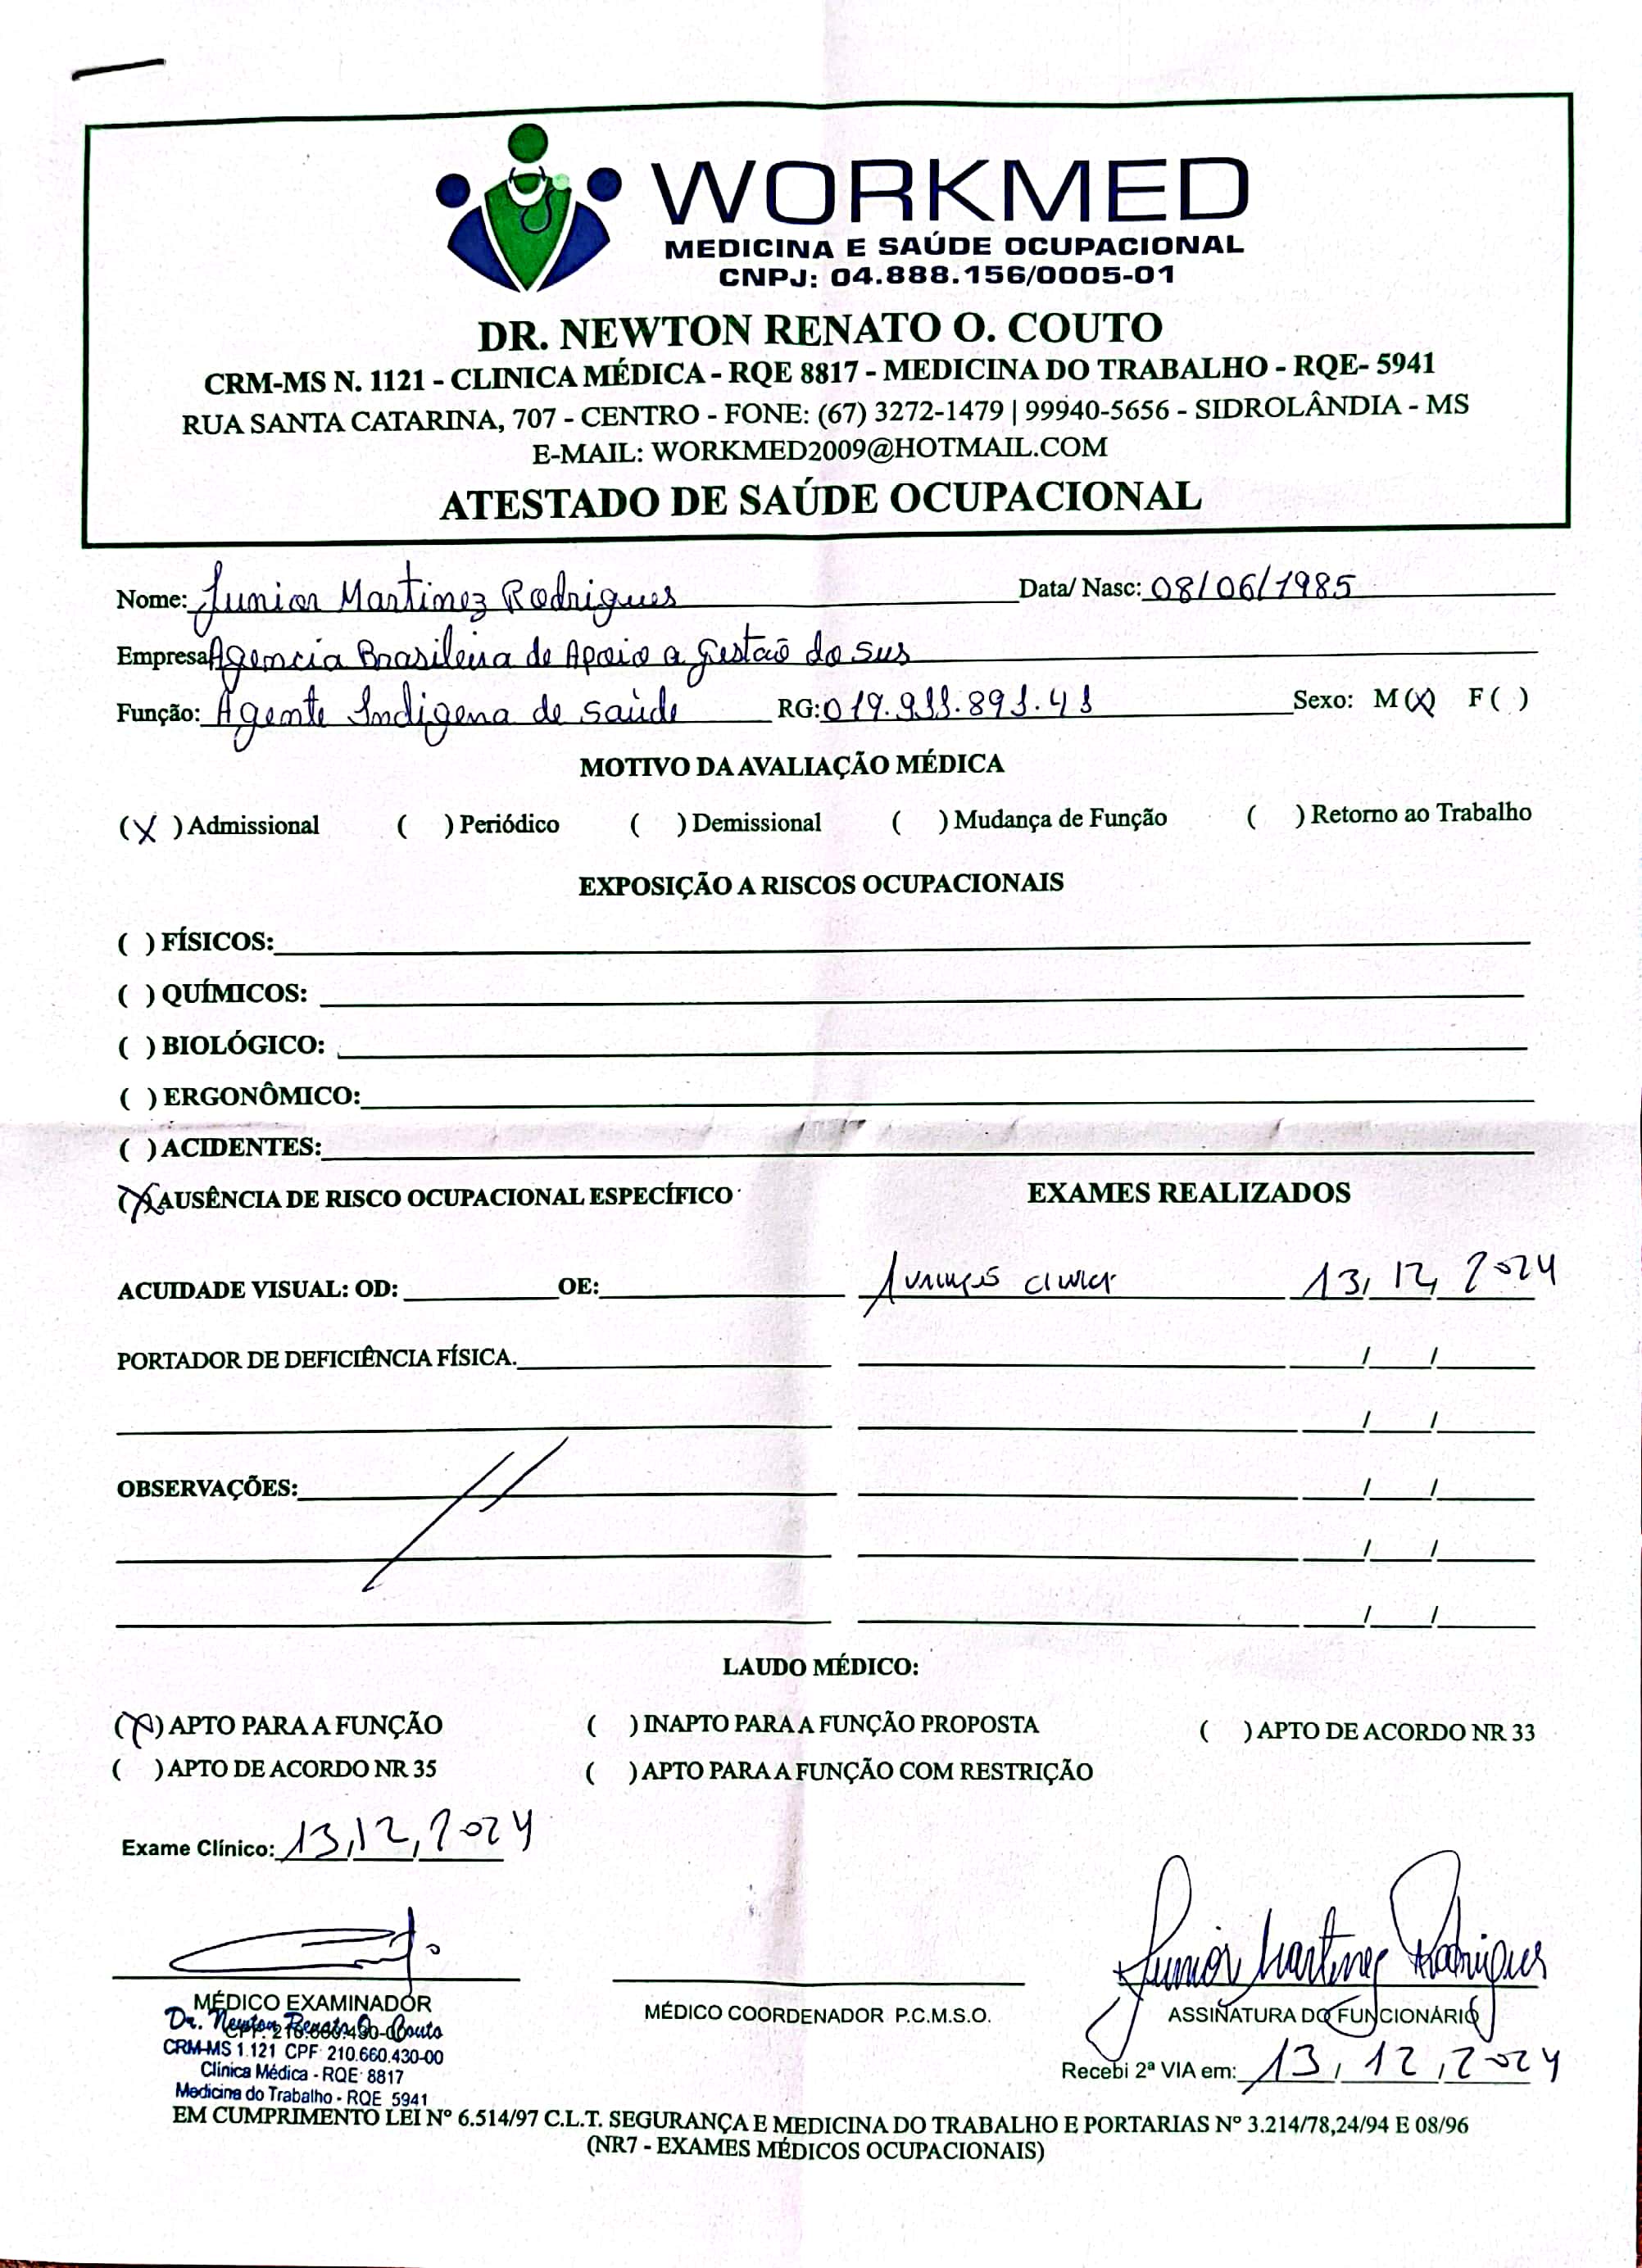 WORKMED
MEDICINA E SAÚDE OCUPACIONAL
CNPJ: 04.888.156/0005-01
DR. NEWTON RENATO O. COUTO
CRM-MS N. 1121 - CLINICA MÉDICA - RQE 8817 - MEDICINA DO TRABALHO - RQE- 5941
RUA SANTA CATARINA, 707 - CENTRO - FONE: (67) 3272-1479 | 99940-5656 - SIDROLÂNDIA - MS
E-MAIL: WORKMED2009@HOTMAIL.COM
ATESTADO DE SAÚDE OCUPACIONAL
Nome: Junior Martinez Rodrigues Data/ Nasc: 08/06/1985
Empresa Agencia Brasileira de Apoio a gestão do sus
Função: Agente Indigena de saúde RG: 019.911.891.41 Sexo: M (X) F ( )
MOTIVO DA AVALIAÇÃO MÉDICA
(X) Admissional ( ) Periódico ( ) Demissional ( ) Mudança de Função ( ) Retorno ao Trabalho
EXPOSIÇÃO A RISCOS OCUPACIONAIS
( ) FÍSICOS:
( ) QUÍMICOS:
( ) BIOLÓGICO:
( ) ERGONÔMICO:
( ) ACIDENTES:
(X) AUSÊNCIA DE RISCO OCUPACIONAL ESPECÍFICO EXAMES REALIZADOS
ACUIDADE VISUAL: OD: OE: 13/12/2024
PORTADOR DE DEFICIÊNCIA FÍSICA. / /
/ /
OBSERVAÇÕES: / /
/ /
/ /
LAUDO MÉDICO:
(X) APTO PARA A FUNÇÃO ( ) INAPTO PARA A FUNÇÃO PROPOSTA ( ) APTO DE ACORDO NR 33
( ) APTO DE ACORDO NR 35 ( ) APTO PARA A FUNÇÃO COM RESTRIÇÃO
Exame Clínico: 13/12/2024
Junior Martinez Rodrigues
MÉDICO EXAMINADOR MÉDICO COORDENADOR P.C.M.S.O. ASSINATURA DO FUNCIONÁRIO
Dr. Newton Renato O. Couto
CRM-MS 1.121 CPF 210.660.430-00
Clínica Médica - RQE 8817
Medicina do Trabalho - RQE 5941
Recebi 2ª VIA em: 13/12/2024
EM CUMPRIMENTO LEI Nº 6.514/97 C.L.T. SEGURANÇA E MEDICINA DO TRABALHO E PORTARIAS Nº 3.214/78,24/94 E 08/96
(NR7 - EXAMES MÉDICOS OCUPACIONAIS)